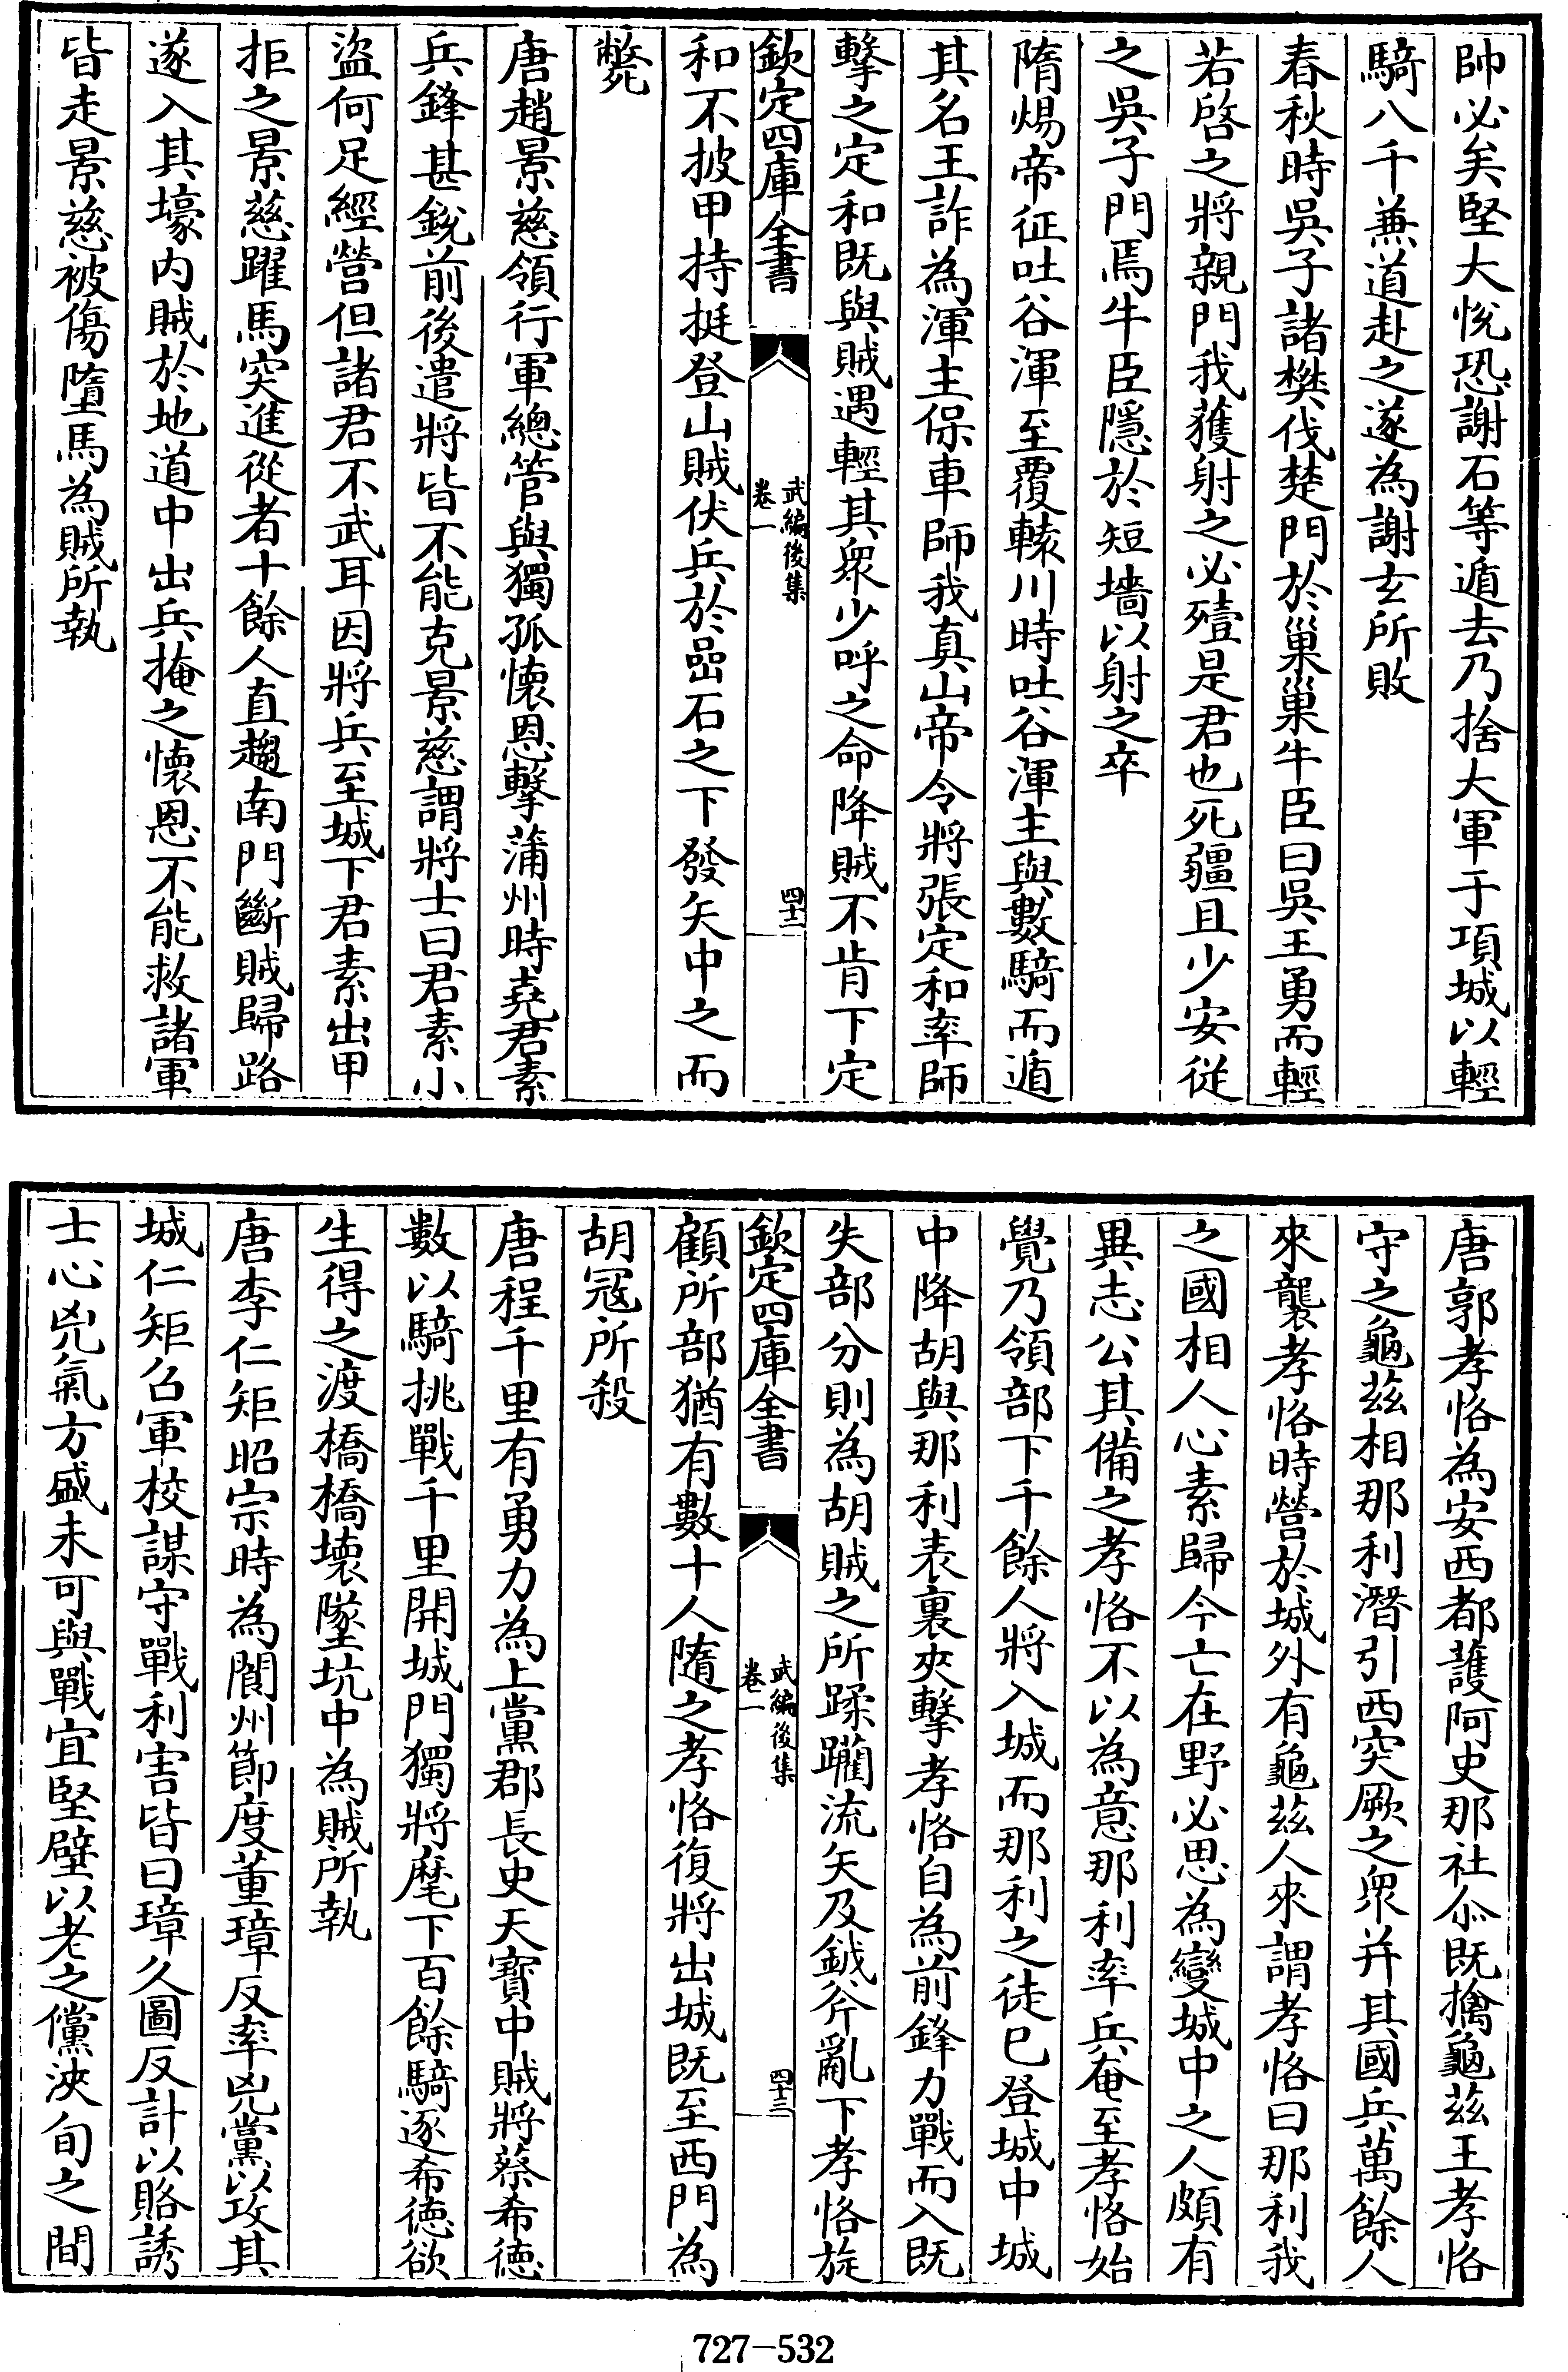 帥必矣堅大悅恐謝石等遁去乃捨大軍于項城以輕
騎八千兼道赴之遂為謝玄所敗
春秋時吳子諸樊伐楚門於巢巢牛臣曰吳王勇而輕
若啓之將親門我獲射之必殪是君也死疆且少安從
之吳子門焉牛臣隱於短墻以射之卒
隋煬帝征吐谷渾至覆轅川時吐谷渾主與數騎而遁
其名王詐為渾主保車師我真山帝令將張定和率師
擊之定和既與賊遇輕其衆少呼之命降賊不肯下定
欽定四庫全書
武編後集
卷一
四十二
和不披甲持挺登山賊伏兵於嵒石之下發矢中之而
斃
唐趙景慈領行軍總管與獨孤懷恩擊蒲州時堯君素
兵鋒甚銳前後遣將皆不能克景慈謂將士曰君素小
盜何足經營但諸君不武耳因將兵至城下君素出甲
拒之景慈躍馬突進從者十餘人直趨南門斷賊歸路
遂入其壕内賊於地道中出兵掩之懷恩不能救諸軍
皆走景慈被傷墮馬為賊所執
唐郭孝恪為安西都護阿史那社尒既擒龜茲王孝恪
守之龜茲相那利潛引西突厥之衆并其國兵萬餘人
來襲孝恪時營於城外有龜茲人來謂孝恪曰那利我
之國相人心素歸今亡在野必思為變城中之人頗有
異志公其備之孝恪不以為意那利率兵奄至孝恪始
覺乃領部下千餘人將入城而那利之徒已登城中城
中降胡與那利表裏夾擊孝恪自為前鋒力戰而入既
失部分則為胡賊之所蹂躪流矢及鉞斧亂下孝恪旋
欽定四庫全書
武編後集
卷一
四十三
顧所部猶有數十人隨之孝恪復將出城既至西門為
胡冦所殺
唐程千里有勇力為上黨郡長史天寶中賊將蔡希德
數以騎挑戰千里開城門獨將麾下百餘騎逐希德欲
生得之渡橋橋壞墜坑中為賊所執
唐李仁矩昭宗時為閬州節度董璋反率兇黨以攻其
城仁矩召軍校謀守戰利害皆曰璋久圖反計以賂誘
士心兇氣方盛未可與戰宜堅壁以老之儻浹旬之間
727-532